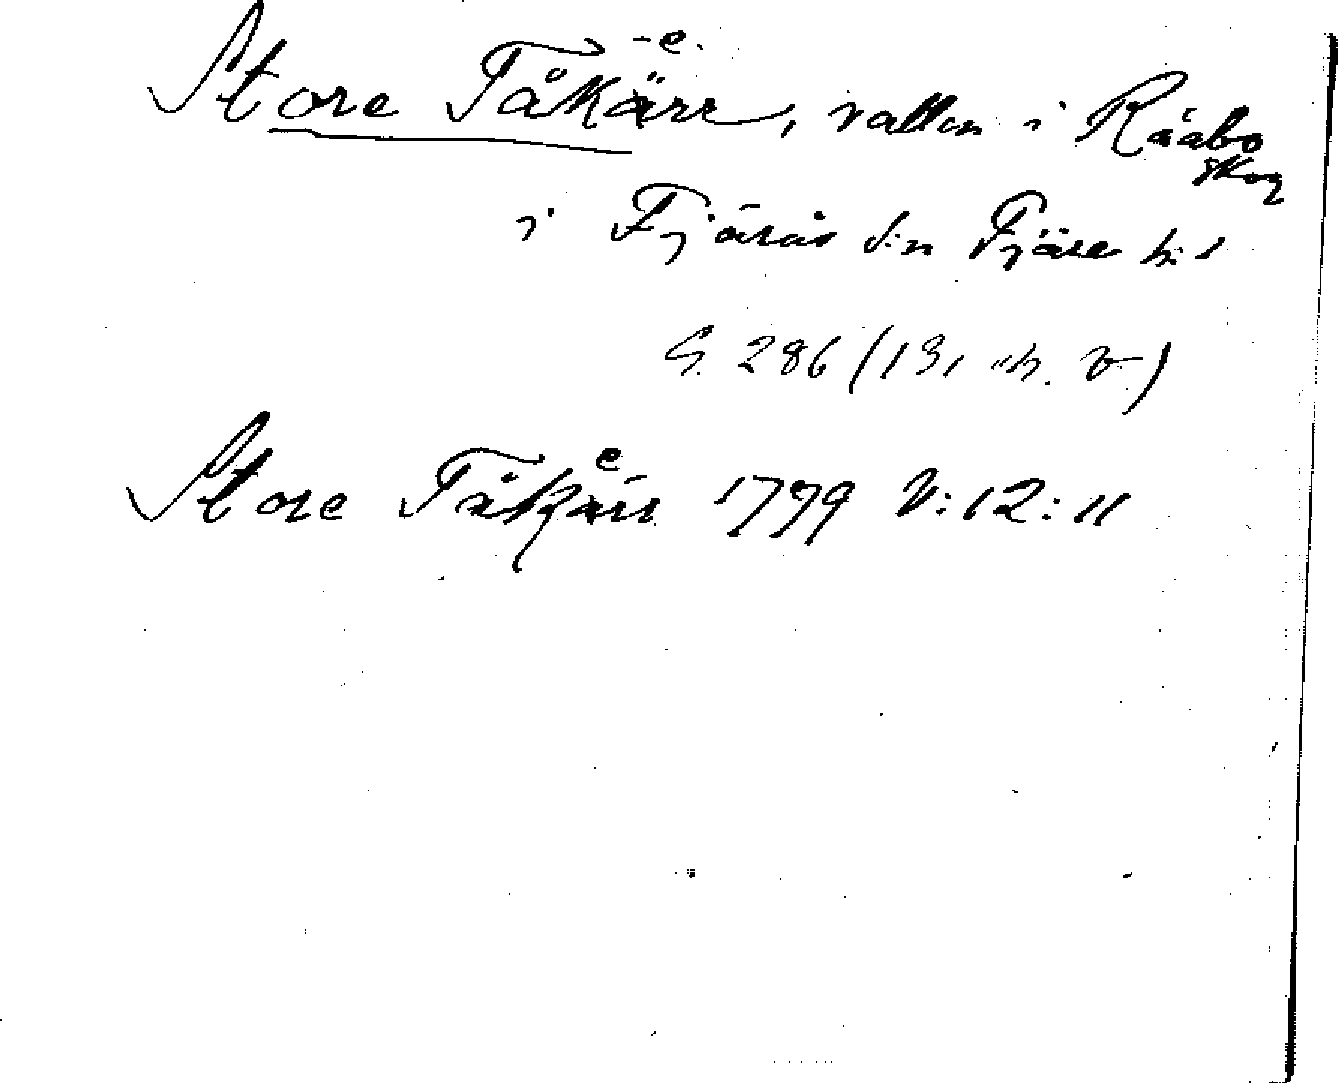 -e.
Store Tåkärr, vatten i Råabo
skog
i Fjärås s:n Fjäre h:d
G. 286 (131 v.)
e
Store Tåkärr 1799 V:12:11